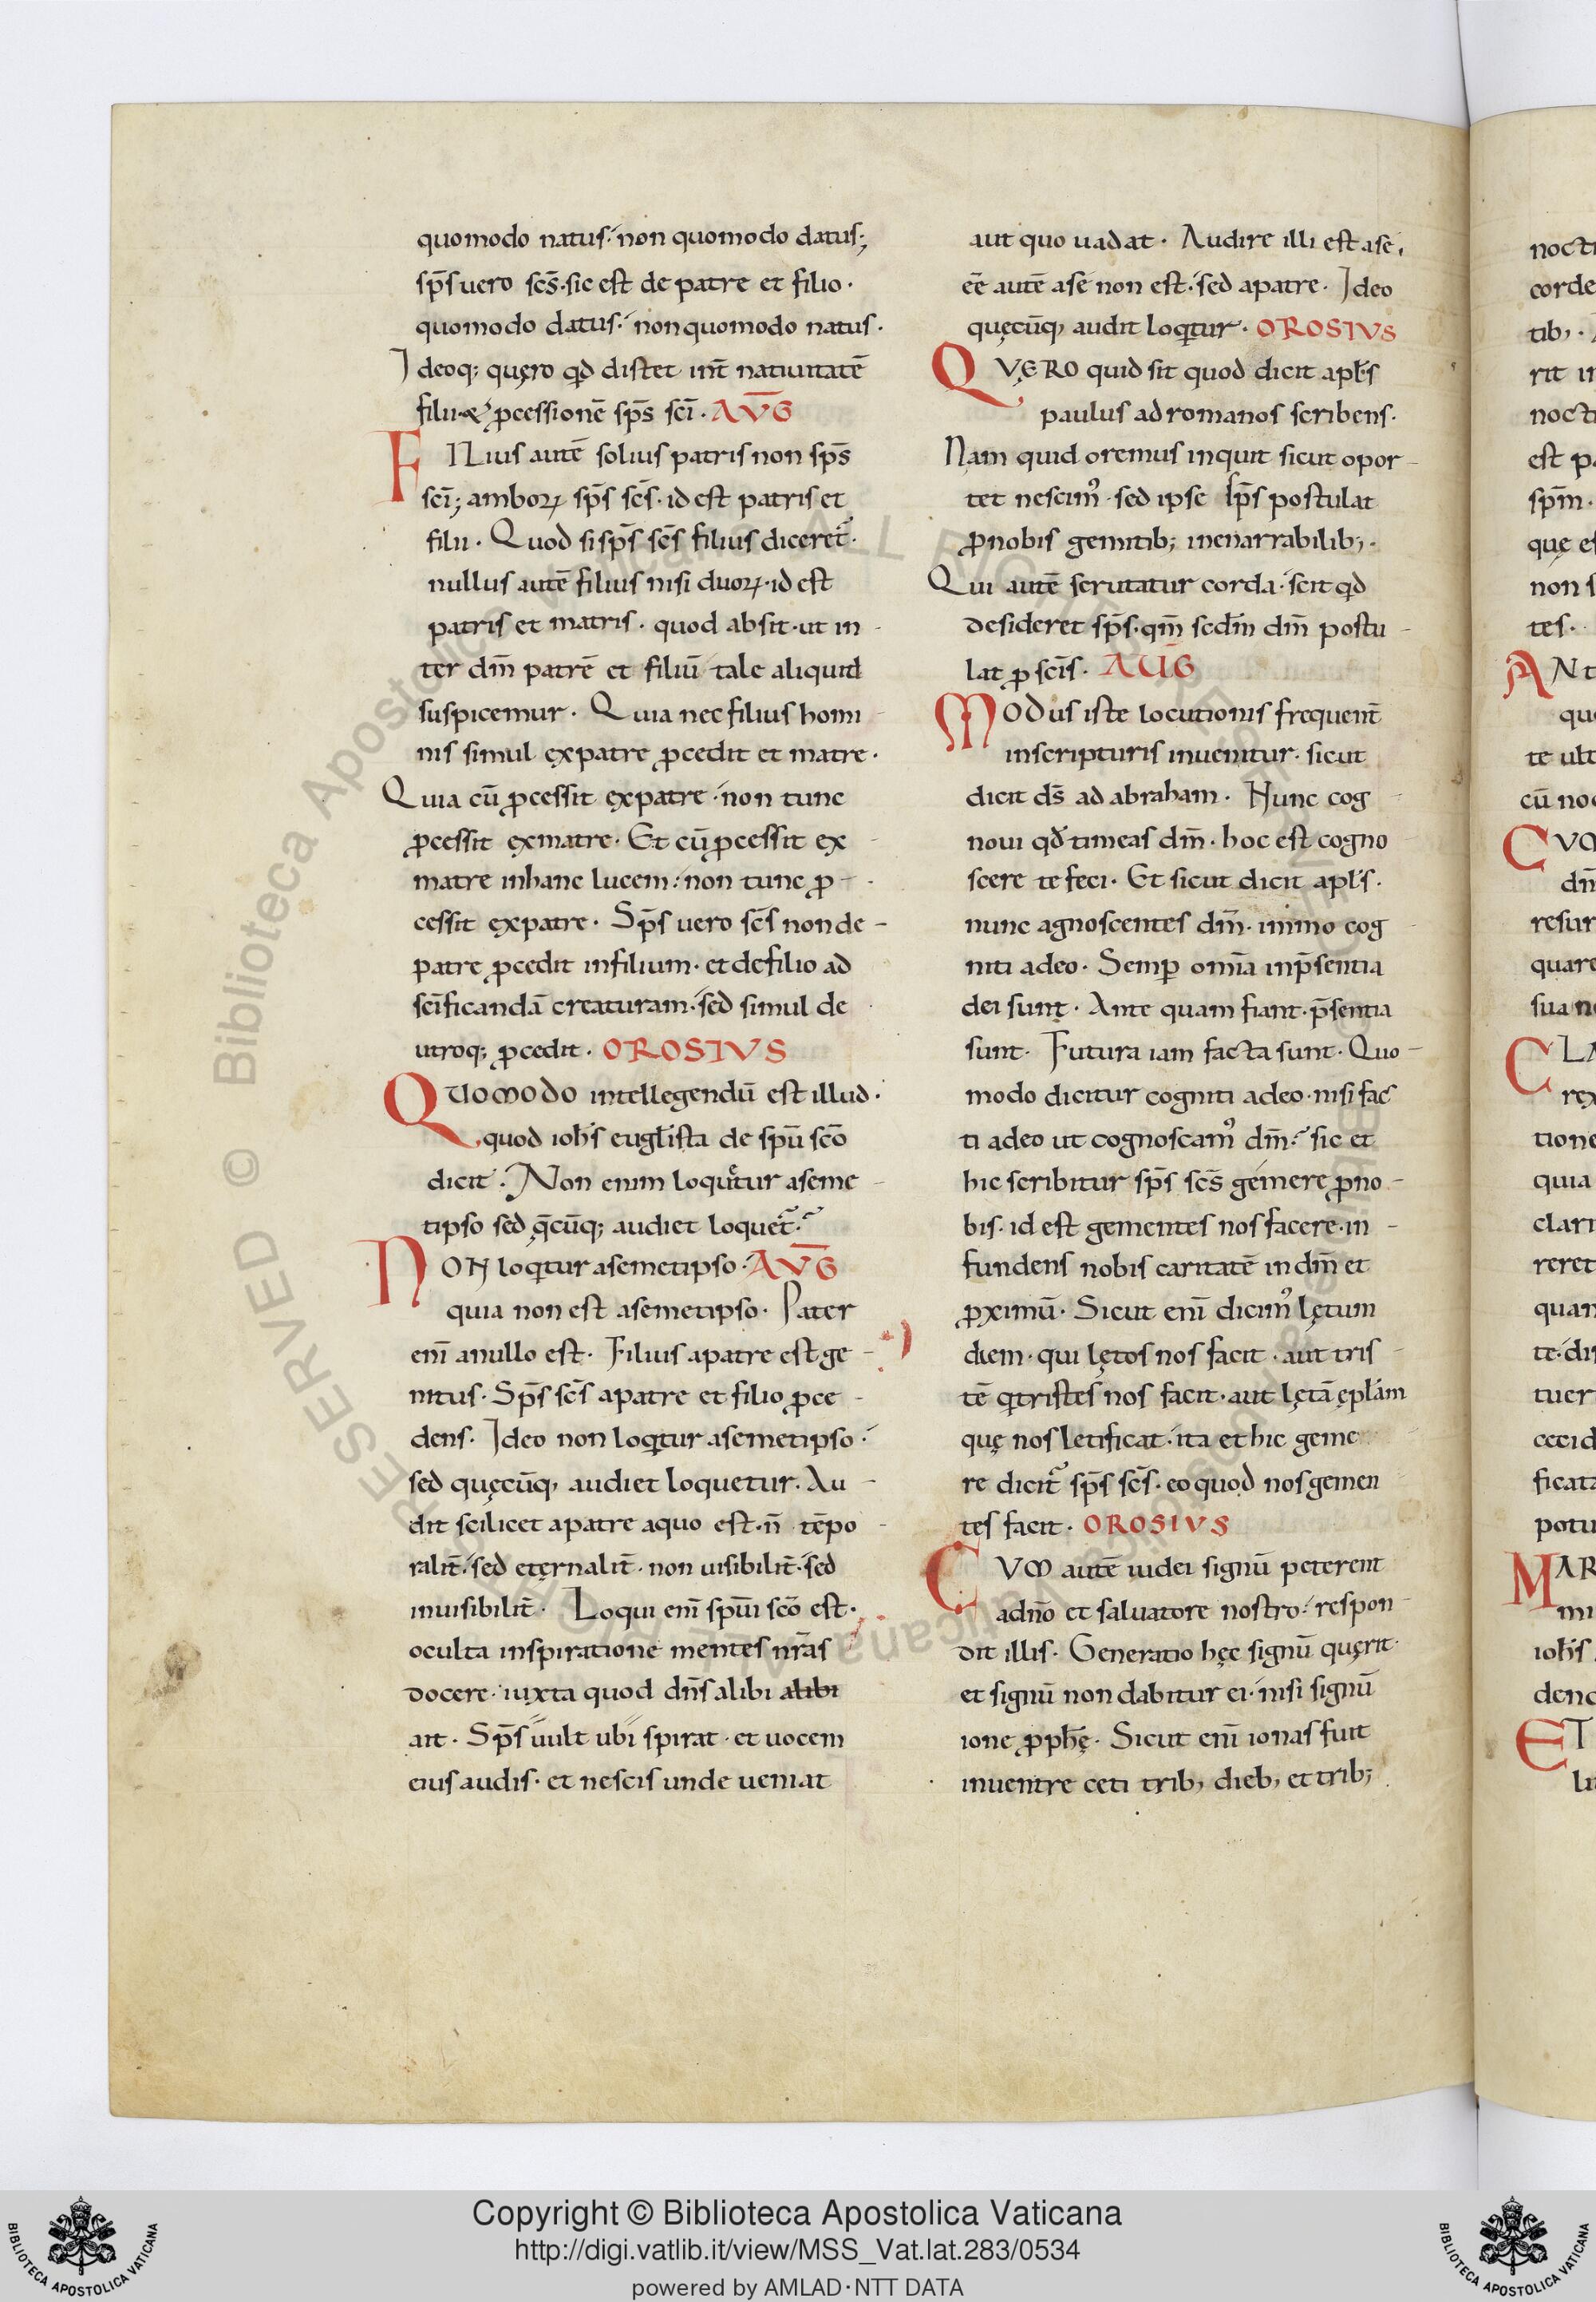 quomodo natus· non quomodo datus;
sp̄s uero sc̄s· sic est de patre et filio·
quomodo datus· non quomodo natus·
Ideoq; quęro qd distet int̄ natiuitatē
filii· & ꝓcessionē sp̄s sc̄i· AV̄G
FILius autē solius patris non sp̄s
sc̄i; amboꝝ sp̄s sc̄s· id est patris et
filii· Quod si sp̄s sc̄s filius diceret̄·
nullus autē filius nisi duoꝝ· id est
patris et matris· quod absit· ut in
ter dm̄ patrē et filiū tale aliquid
suspicemur· Quia nec filius homi
nis simul ex patre ꝓcedit et matre·
Quia cū ꝓcessit ex patre· non tunc
ꝓcessit ex matre· Et cū ꝓcessit ex
matre in hanc lucem· non tunc ꝓ
cessit ex patre· Sp̄s uero sc̄s non de
patre ꝓcedit in filium· et de filio ad
sc̄ificandā creaturam· sed simul de
utroq; ꝓcedit· OROSIVS
QUOMODO intellegendū est illud·
quod ioh̄s eugl̄ista de sp̄u sc̄o
dicit· Non enim loquitur aseme
tipso sed q̨̄cūq; audiet loquet̄·
NON loqitur asemetipso· AV̄G
quia non est asemetipso· Pater
enī anullo est· Filius apatre est ge
nitus· Sp̄s sc̄s apatre et filio ꝓce
dens· Ideo non loqitur asemetipso·
sed quęcūq, audiet loquetur· Au
dit scilicet apatre aquo est· n̄ tēpo
ralit̄· sed eternalit̄· non uisibilit̄· sed
inuisibilit̄· Loqui enī sp̄ui sc̄o est·
oculta inspiratione mentes nr̄as
docere· iuxta quod dn̄s alibi alibi
ait· Sp̄s uult ubi spirat· et uocem
eius audis· et nescis unde ueniat
aut quo uadat· Audire illi est ase·
eē autē ase non est· sed apatre· Ideo
quęcūq, audit loqitur· OROSIVS
QVĘRO quid sit quod dicit apl̄s
paulus ad romanos scribens·
Nam quid oremus inquit sicut opor
tet nescim᾿ sed ipse sp̄s postulat
ꝓ nobis gemitib; inenarrabilib;·
Qui autē scrutatur corda· scit qd
desideret sp̄s· qm̄ scdm̄ dm̄ postu
lat ꝓ sc̄is· AŪG
MODUS iste locutionis frequent̄
in scripturis inuenitur· sicut
dicit ds̄ ad abraham· Nunc cog
noui qd timeas dm̄· hoc est cogno
scere te feci· Et sicut dicit apl̄s·
nunc agnoscentes dm̄· immo cog
niti adeo· Semꝑ omīa in p̄sentia
dei sunt· Ante quam fiant· p̄sentia
sunt· Futura iam facta sunt· Quo
modo dicitur cogniti adeo· nisi fac
ti adeo ut cognoscam᾿ dm̄· sic et
hic scribitur sp̄s sc̄s gemere ꝓ no
bis· id est gementes nos facere· in
fundens nobis caritatē in dm̄ et
ꝓximū· Sicut enī dicim᾿ lętum
diem· qui lętos nos facit· aut tris
tē qi tristes nos facit· aut lętā epl̄am
quę nos letificat· ita et hic geme
re dicit̄ sp̄s sc̄s· eo quod nos gemen
tes facit· OROSIVS
CVM autē iudei signū peterent
adn̄o et saluatore nostro· respon
dit illis· Generatio hęc signū quęrit·
et signū non dabitur ei· nisi signū
ione ꝓph̄ę· Sicut enī ionas fuit
in uentre ceti trib, dieb, et trib;
Copyright © Biblioteca Apostolica Vaticana
http://digi.vatlib.it/view/MSS_Vat.lat.283/0534
powered by AMLAD·NTT DATA
BIBLIOTECA APOSTOLICA VATICANA
BIBLIOTECA APOSTOLICA VATICANA